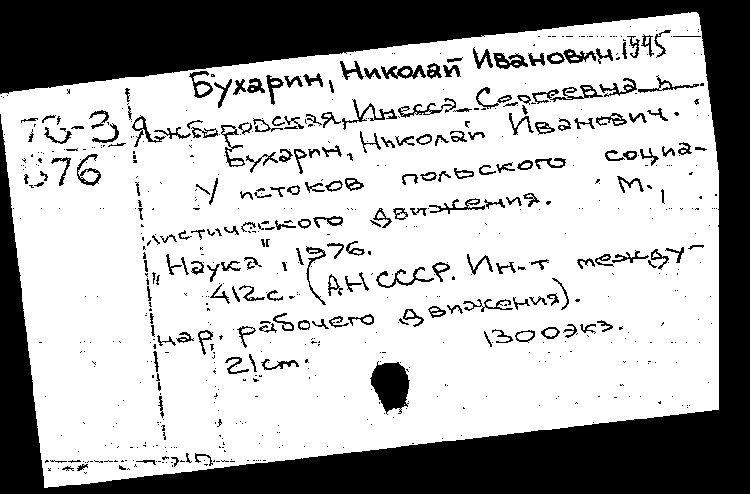 Бухарин, Николай Иванович. 1945
76-3 Яжборовская, Инесса Сергеевна и
676 Бухарин, Николай Иванович.
У истоков польского социа-
листического движения. М.,
"Наука", 1976.
412с. (АН СССР. Ин-т между-
нар. рабочего движения).
21cm. 1300экз.